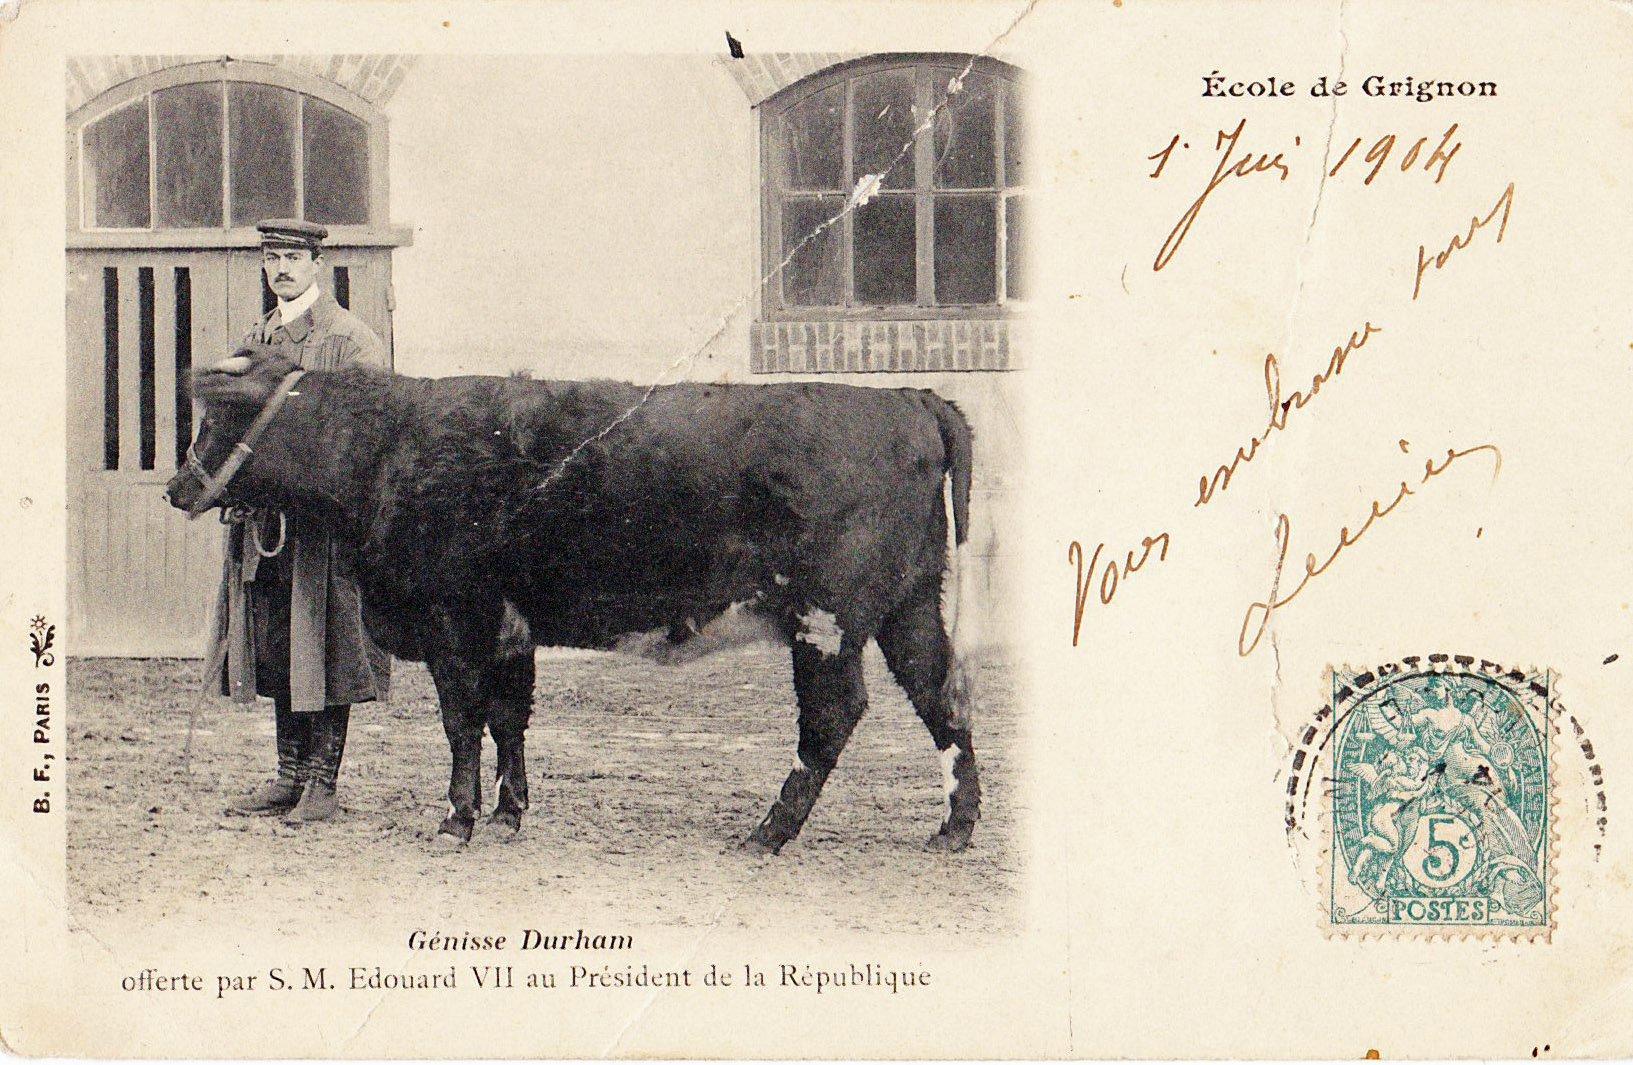 École de Grignon
1 Juin 1904
Vous embrasse tous
Lucien
Génisse Durham
offerte par S. M. Edouard VII au Président de la République
B. F., PARIS
5c
POSTES